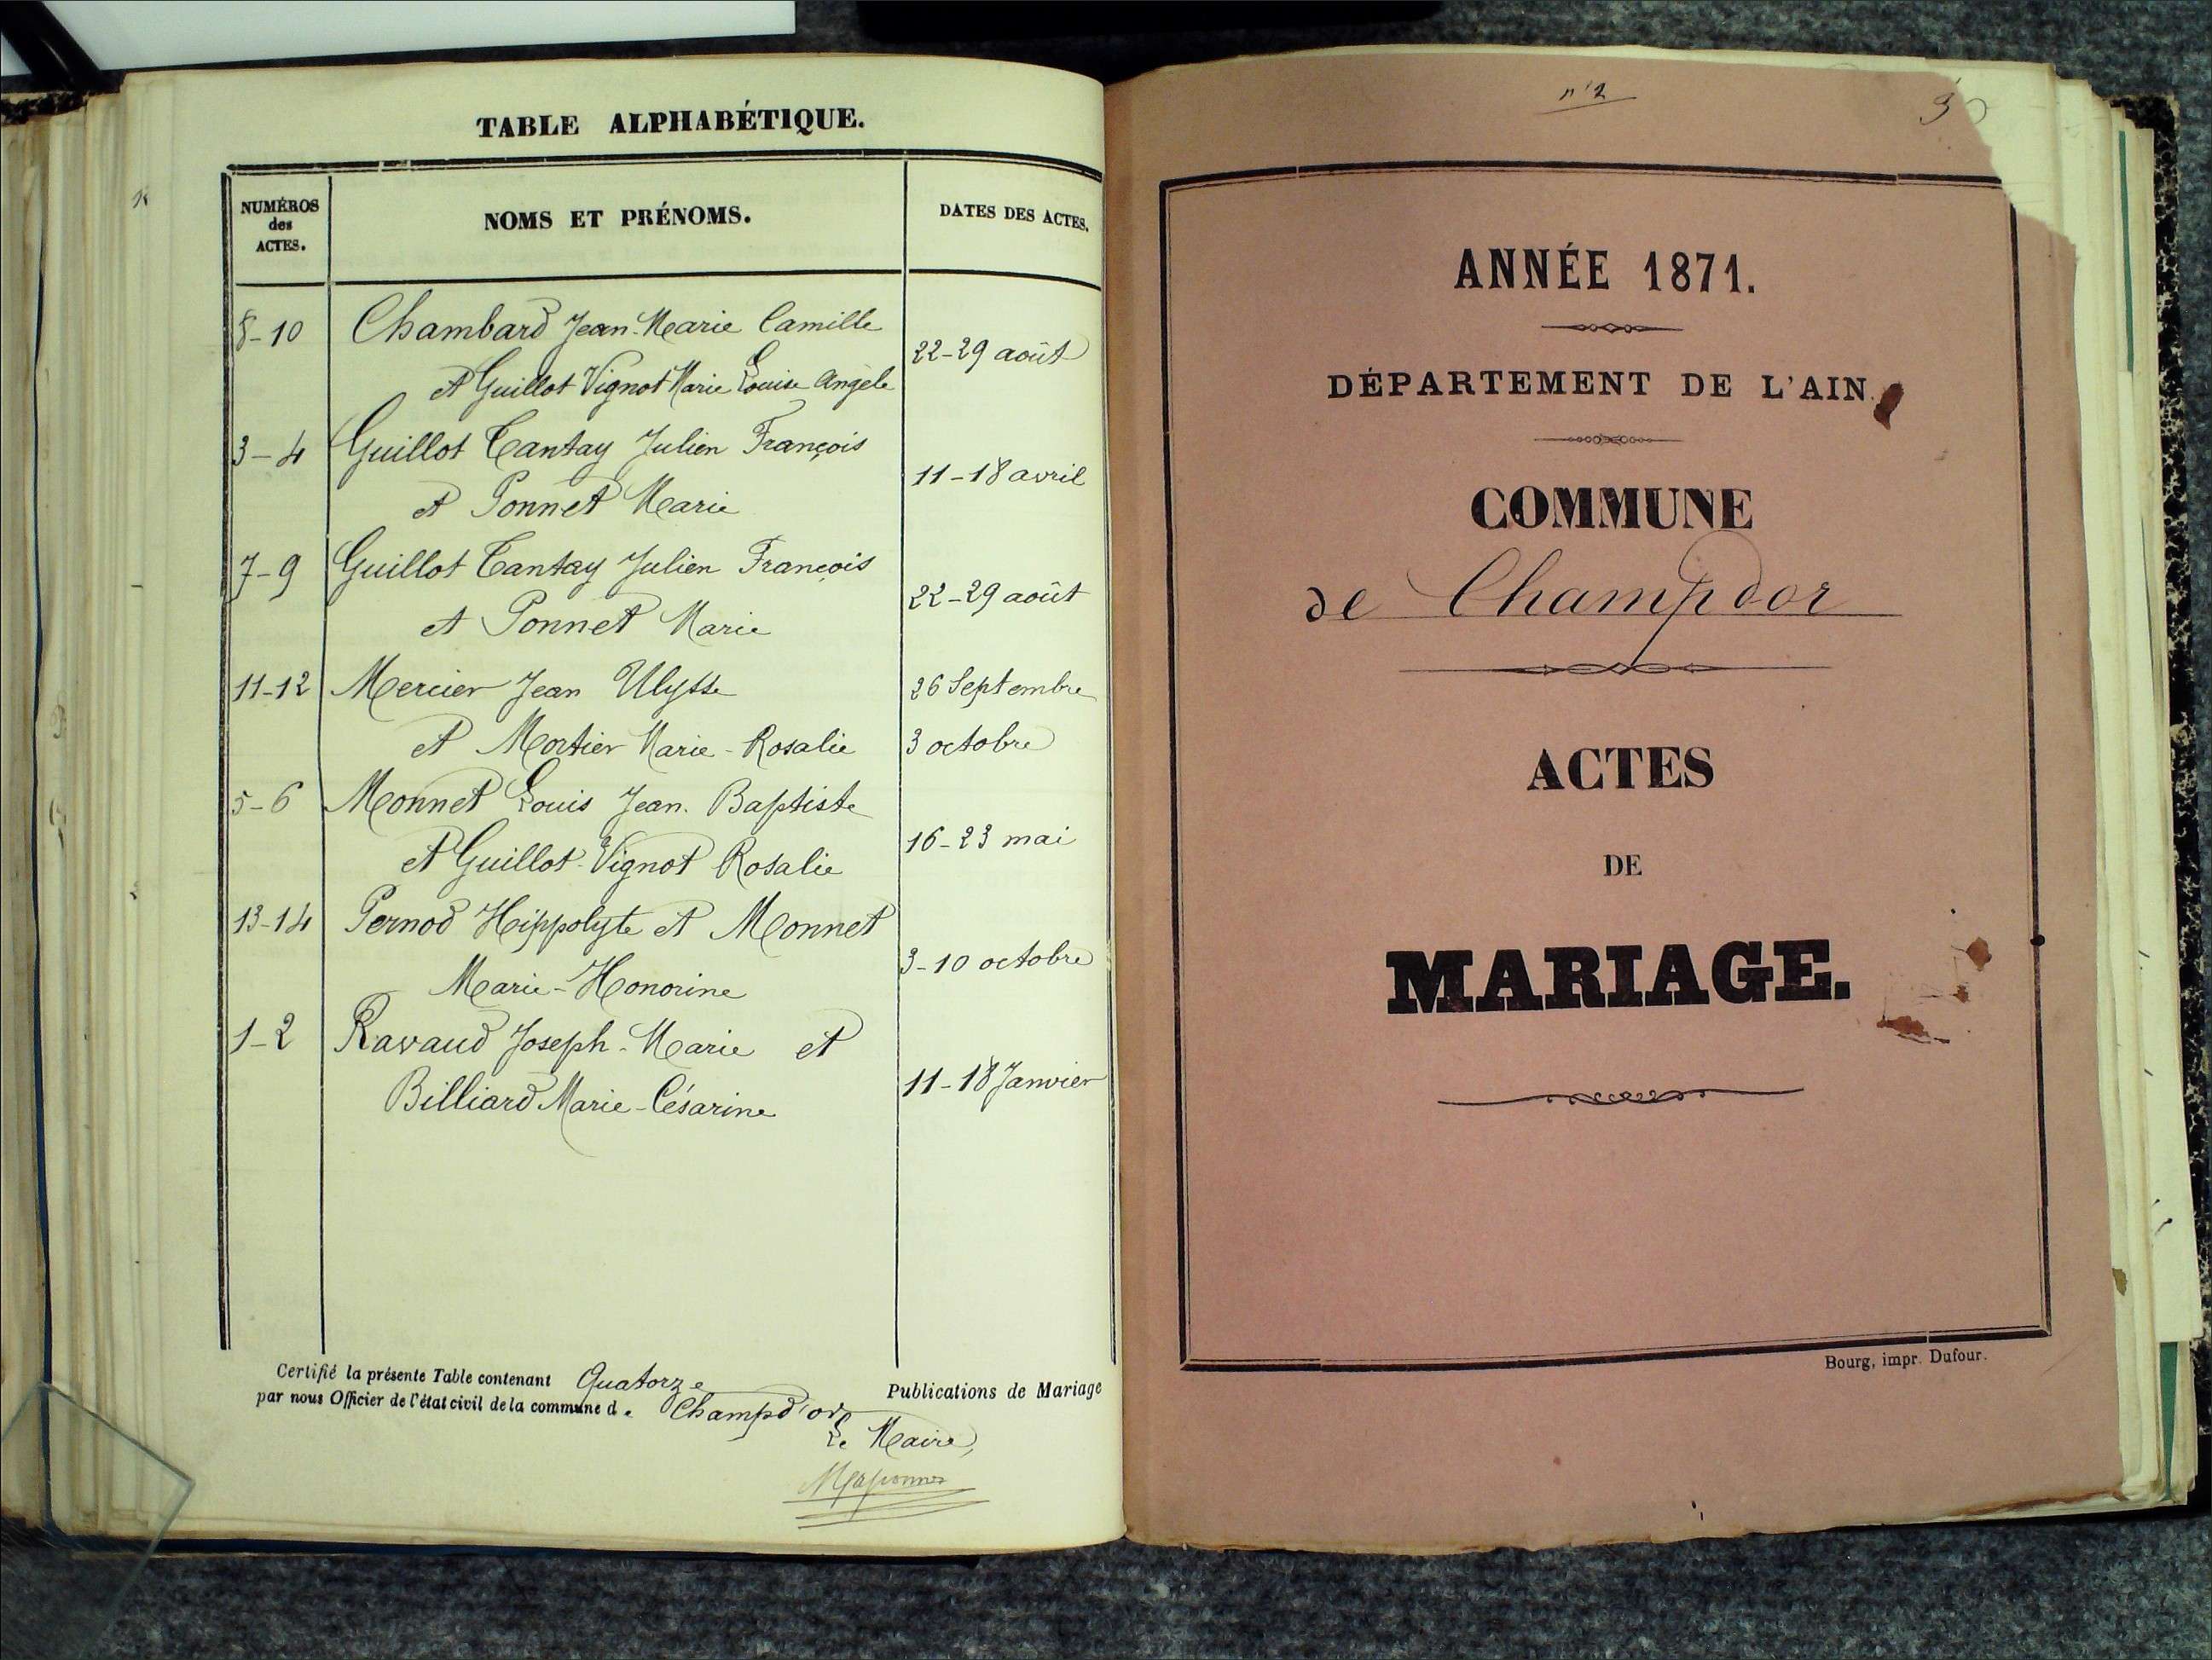 TABLE ALPHABÉTIQUE.
NUMÉROS
des
ACTES.
NOMS ET PRÉNOMS.
DATES DES ACTES.
8-10 Chambard Jean-Marie Camille
et Guillot Vignot Marie Louise Angèle
22-29 août
3-4 Guillot Tantay Julien François
et Ponnet Marie
11-18 avril
7-9 Guillot Tantay Julien François
et Ponnet Marie
22-29 août
11-12 Mercier Jean Ulysse
26 Septembre
et Mortier Marie-Rosalie
3 octobre
5-6 Monnet Louis Jean-Baptiste
et Guillot-Vignot Rosalie
16-23 mai
13-14 Pernod Hippolyte et Monnet
Marie-Honorine
3-10 octobre
1-2 Ravaud Joseph-Marie et
Billiard Marie-Césarine
11-18 Janvier
Certifié la présente Table contenant Quatorze Publications de Mariage
par nous Officier de l'état civil de la commune de Champd'or
Le Maire,
n° 2
ANNÉE 1871.
DÉPARTEMENT DE L'AIN.
COMMUNE
de Champdor
ACTES
DE
MARIAGE.
Bourg, impr. Dufour.